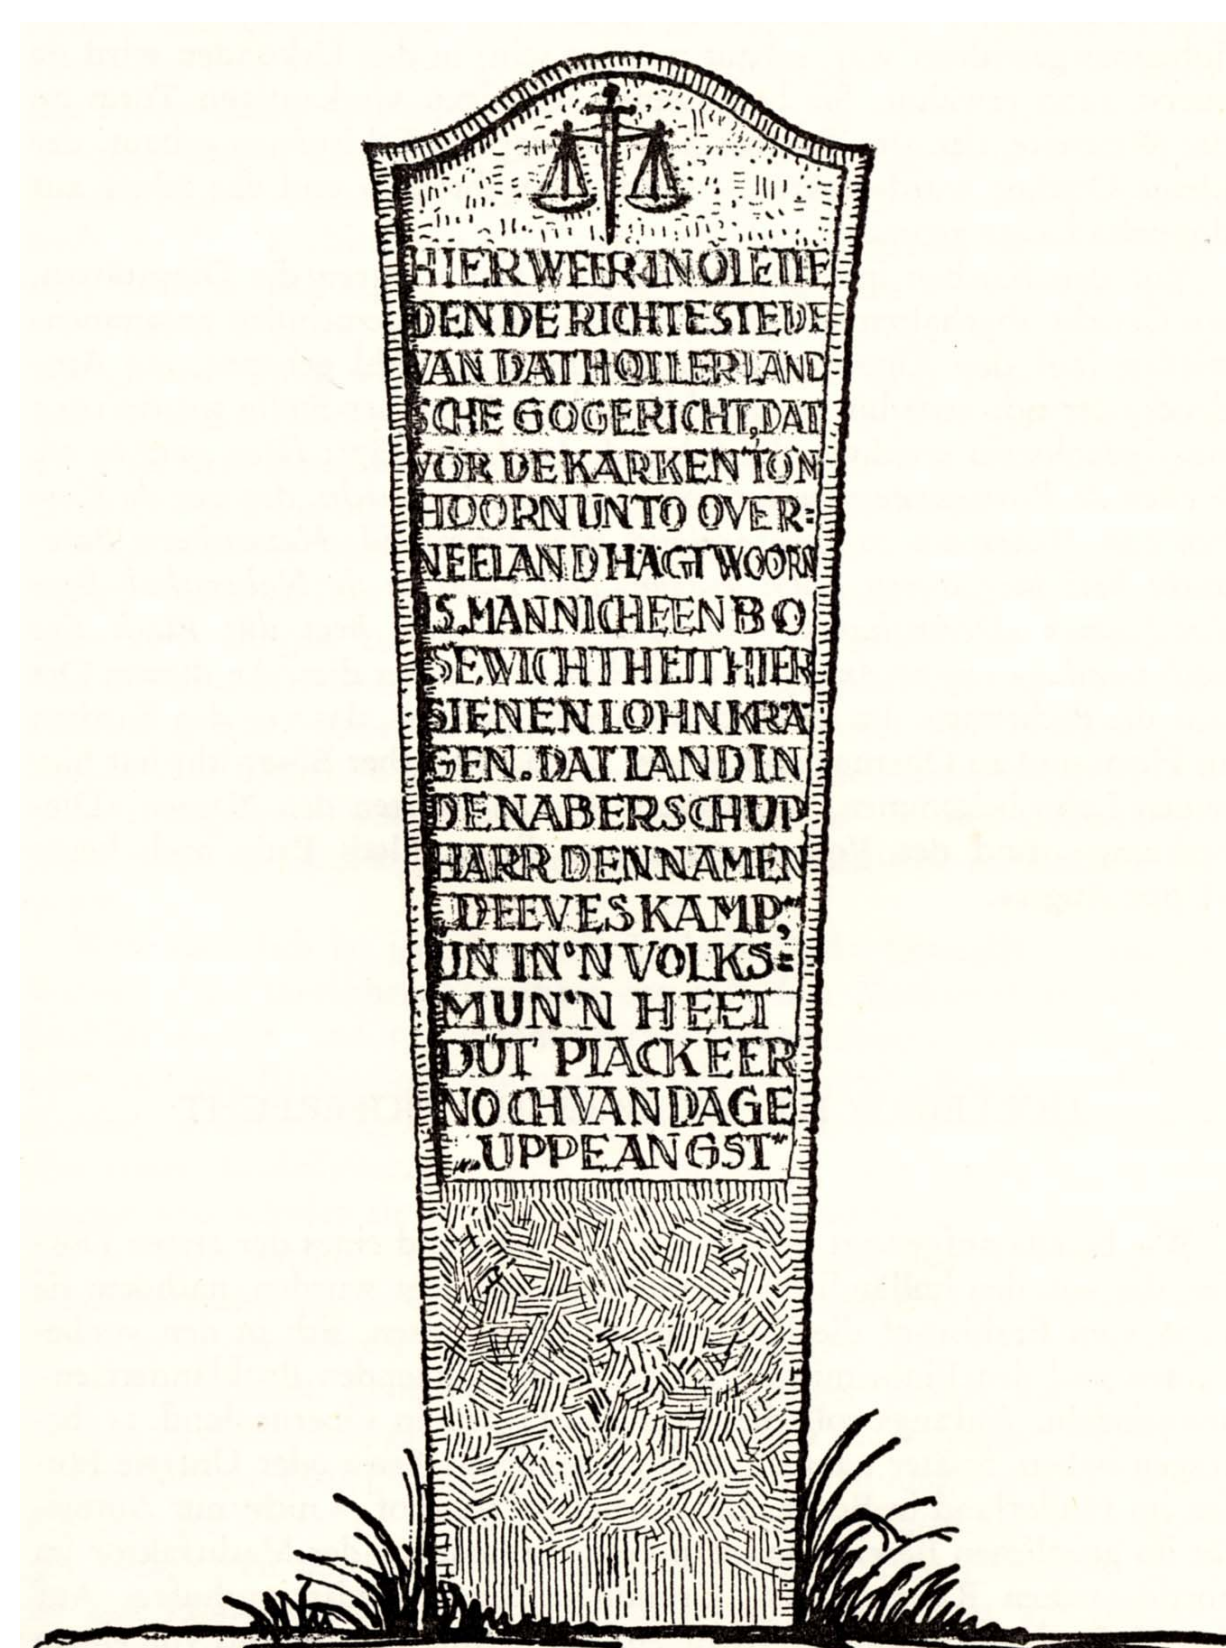 HIER WEER IN OLE TIE
DEN DE RICHTESTEDE
VAN DAT HOLLERLAND
SCHE GOGERICHT, DAT
VÖR DE KARKEN TON
HOORN UN TO OVER=
NEELAND HÄGT WOORN
IS. MANNICHEEN BÖ
SEWICHT HETT HIER
SIENEN LOHN KRÄ
GEN. DAT LAND IN
DE NABERSCHUP
HARR DEN NAMEN
„DEEVESKAMP,“
UN IN'N VOLKS=
MUN'N HEET
DÜT PLACK EER
NOCH VANDAGE
„UPPE ANGST“